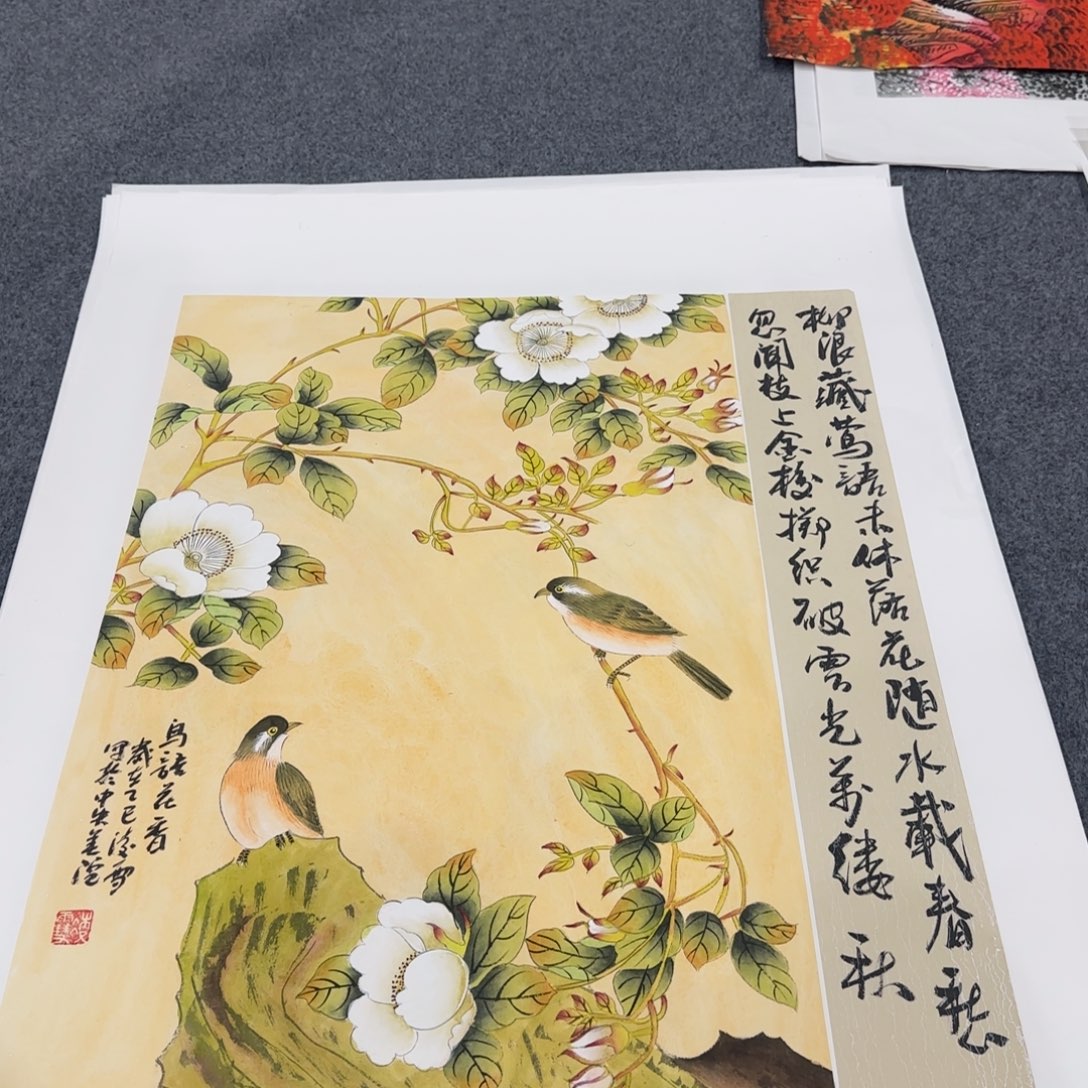 柳浪藏莺語未休落花随水載春愁
忽闻枝上金梭掷织破雲光万缕秋
鳥語花香
歲在乙巳
写於中央美院